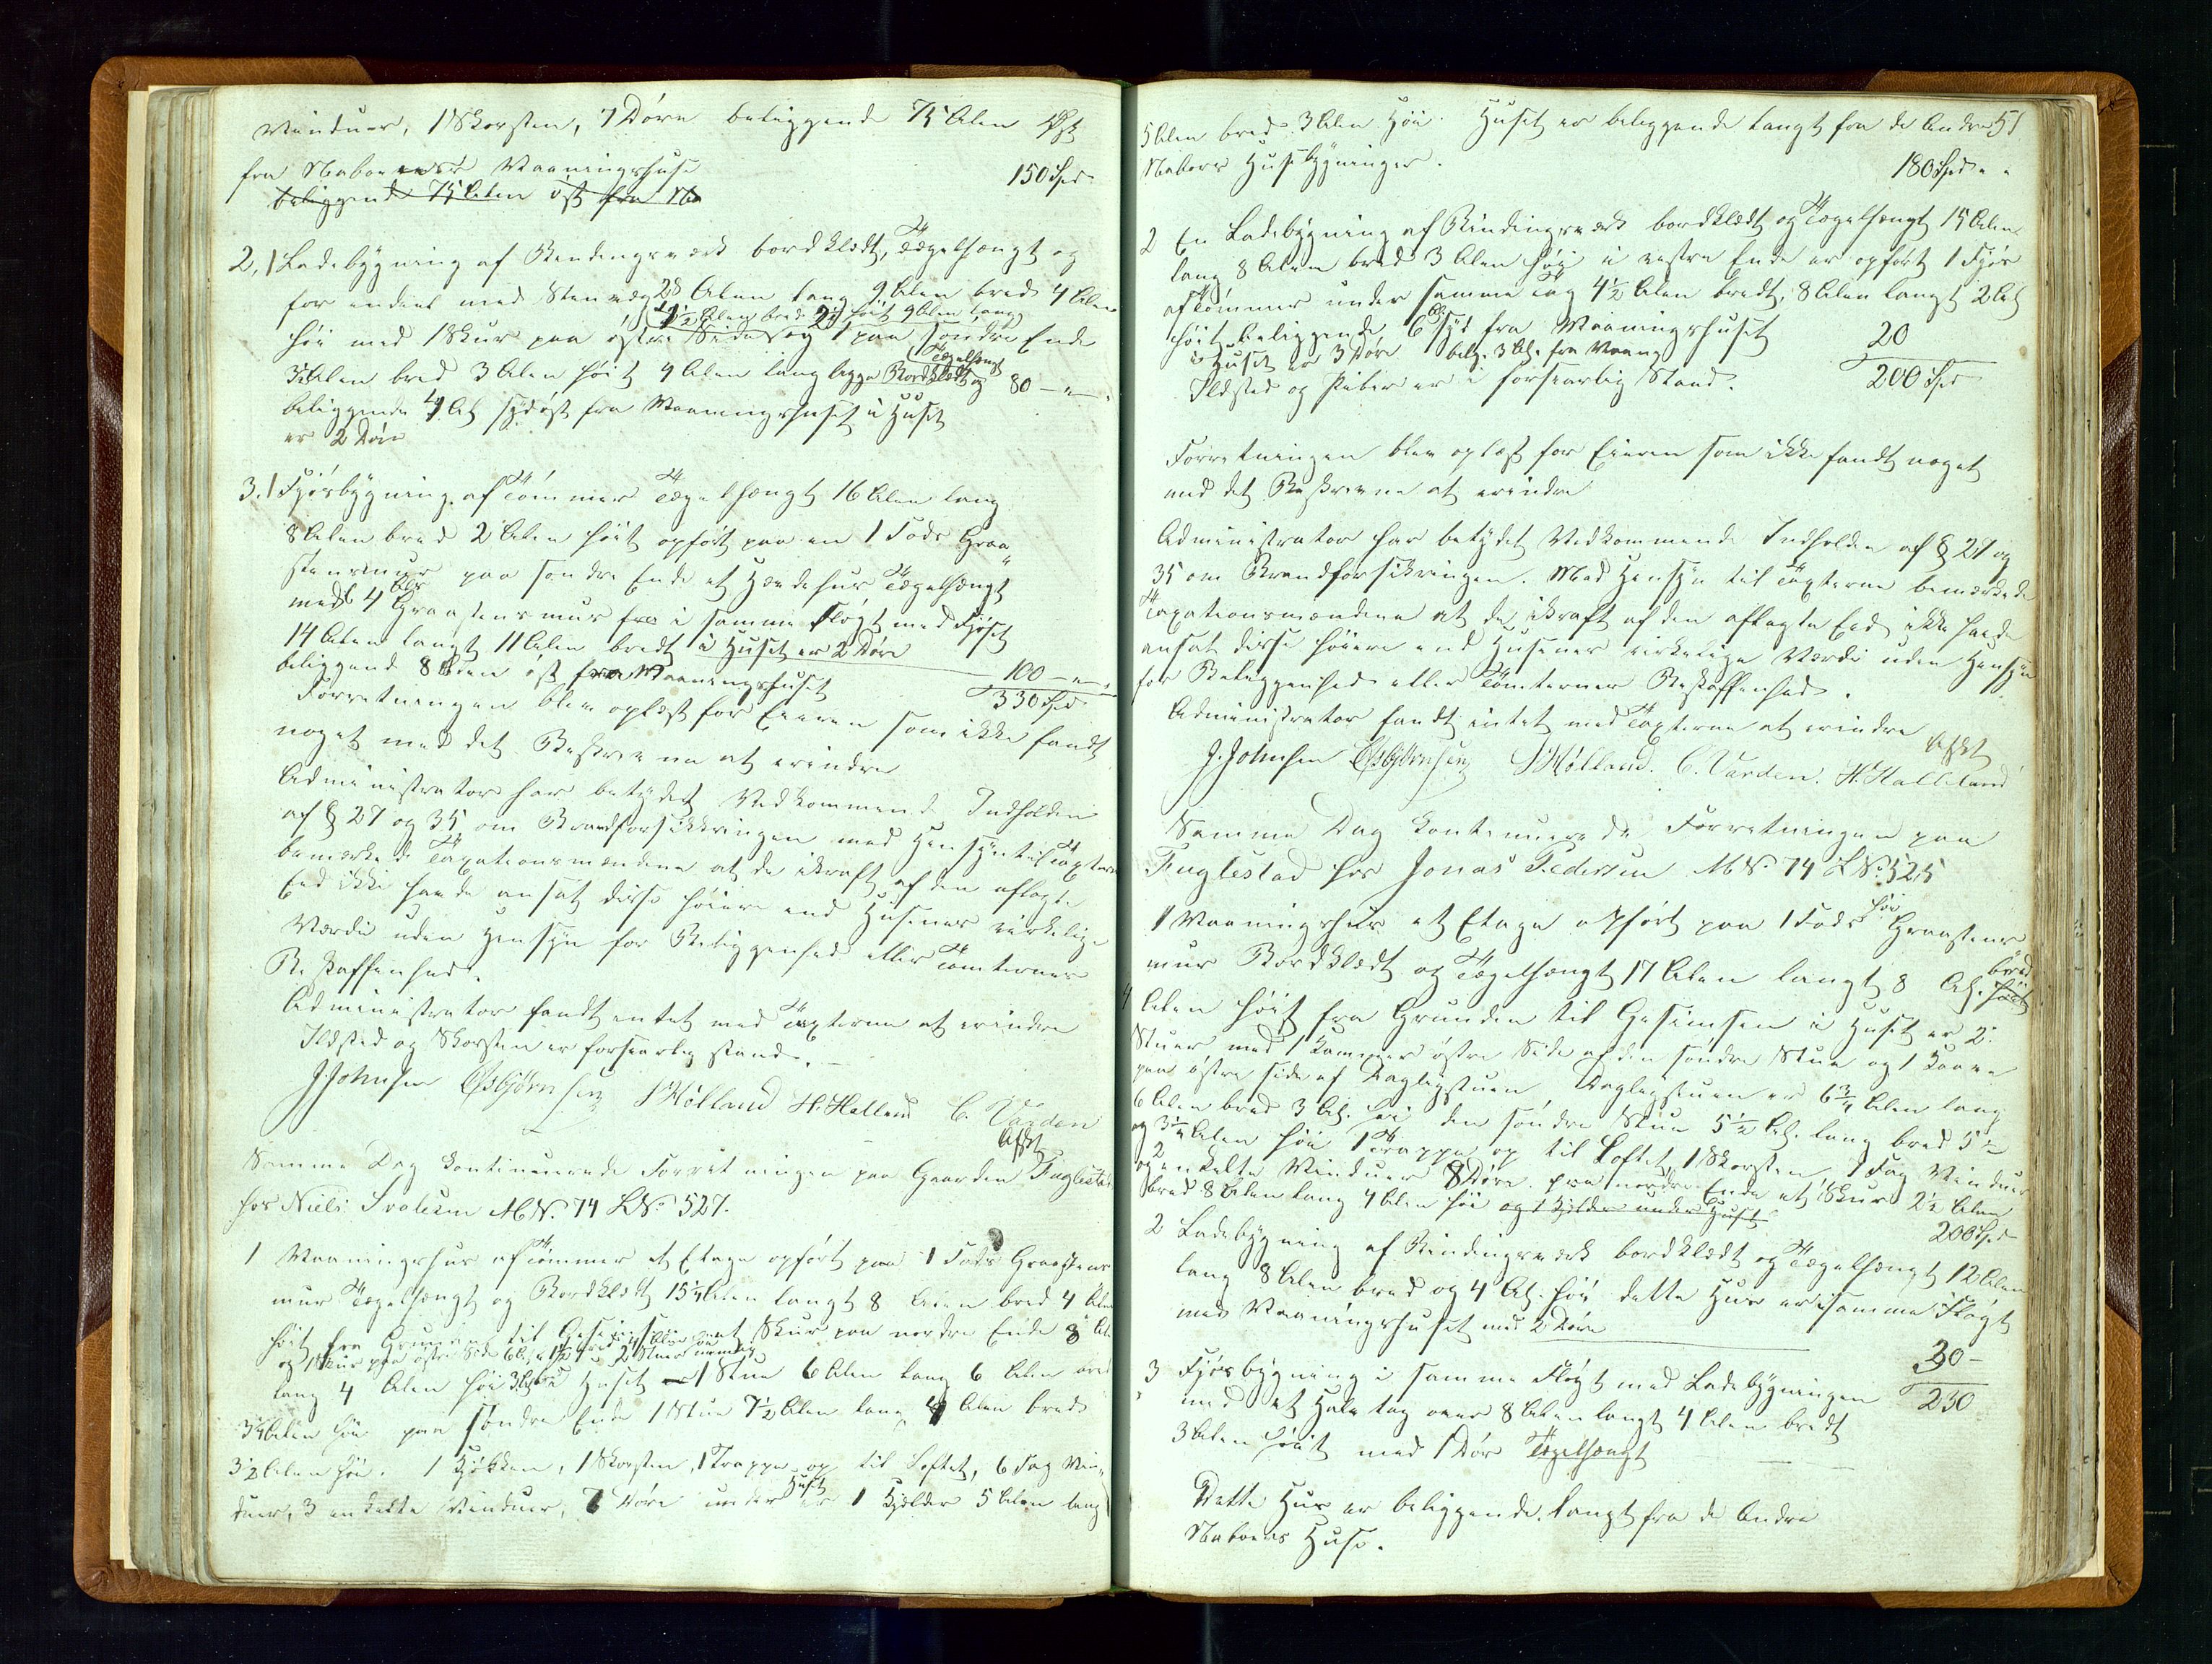 Vinduer, 1 Skorsten, 7 Döre beliggende 75 Alen Öst
fra Naboernes Vaaningshuse 150 Spd
beliggende 75 Alen öst fra Na
2, 1 Ladebygning af Bindingsværk bordklædt, Tægelhængt og
for enden med Stenvæg 28 Alen lang 9 Alen bred 4 Alen
1½ Alen bred 2½ höit 9 Alen lang
höi med 1 Skur paa östre Side og 1 paa söndre Ende
Tægelhængt
3 Alen bred 3 Alen höit 9 Alen lang begge Bordklædt og 80 — " —
beliggende 4 Al. sydöst fra Vaaningshuset i Huset
er 2 Döre
3. 1 Fjösbygning af Tömmer Tægelhængt 16 Alen lang
8 Alen bred 2 Alen höit opfört paa en 1 Fods Graa
stensmur paa söndre Ende et Hædehus Tægelhængt
med 4 Graastensmur i samme Flögt med Fjöset
14 Alen langt 11 Alen bredt i Huset er 2 Döre
beliggend 8 Alen öst fra Vaaningshuset 100 — " —
330 Spd
Forretningen blev oplæst for Eieren som ikke fandt
noget med det Beskrevne at erindre
Administrator har betydet Vedkommende Indholden
af § 27 og 35 om Brandforsikkringen med Hensyn til Taxterne
bemærkede Taxationsmændene at de ikraft af den aflagte
Eed ikke havde ansat disse höiere end Husenes virkelige
Værdie uden Hensyn for Beliggenhed eller Tomternes
Beskaffenhed.
Administrator fandt intet med Taxterne at erindre
Ildsted og Skorsten er forsvarlig stand. —
J. Johnsen Esbjörnsen Hölland H. Halleland C. Varden
Afskt
Samme Dag Kontinuerede Forretningen paa Gaarden Fuglestad
hos Niels Svalesen MN. 74 LN. 527.
1 Vaaningshus af Tömmer et Etage opfört paa 1 Fods Graastens
mur Tægelhængt og Bordklædt 15¼ Alen langt 8 Alen bred 4 Alen
höit fra Grunden til Gesimsen et Skur paa nordre Ende 8 Al.
og 1 Skur paa östre Side
lang 4 Alen höi i Huset 1 Stue 6 Alen lang 6 Alen bred
3¼ Alen höi paa söndre Ende 1 Stue 7½ Alen lang 4 Alen bred
3½ Alen höi. 1 Kjökken, 1 Skorsten, 1 Trappe op til Loftet, 6 Fag Vin
duer, 3 enkelte Vinduer, 7 Döre under Huset er 1 Kjelder 5 Alen lang
51
5 Alen bred 3 Alen Höi. Huset er beliggende langt fra de Andre
Nabers Husebygninger. 180 Spd " "
2 En Ladebygning af Bindingsværk bordklædt og Tægelhængt 15 Alen
lang 8 Alen bred 3 Alen höi i vestre Ende er opfört 1 Fjös
af Tömmer under samme Tag 4½ Alen bredt, 8 Alen langt 2 Al.
höit beliggende 6 Al. syd fra Vaaningshuset 20
i Huset er 3 Döre
Ildsted og Piber er i forsvarlig Stand. 200 Spd
Forretningen blev oplæst for Eieren som ikke fandt noget
med det Beskrevne at erindre
Administrator har betydet Vedkommende Indholden af § 27 og
35 om Brandforsikringen. Med Hensyn til Taxterne bemærkede
Taxationsmændene at de ikraft af den aflagte Eed ikke havde
ansat disse höiere end Husenes virkelige Værdie uden Hensyn
for Beliggenhed eller Tömternes Beskaffenhed.
Administrator fandt intet med Taxterne at erindre
Afskt
J. Johnsen Esbjörnsen Hölland. C. Varden. H. Halleland
Samme Dag Kontinuerede Forretningen paa
Fuglestad hos Jonas Pedersen MN. 74 LN. 525
1 Vaaningshus et Etage opfört paa 1 Fods höi Graastens
mur Bordklædt og Tægelhængt 17 Alen langt 8 Al. höit bred
4 Alen höit fra Grunden til Gesimsen i Huset er 2
Stuer med 1 Kammer östre Side af den söndre Stue og 1 Kaave
paa östre side af Dagligstuen Dagligstuen er 6¾ Alen lang
6 Alen bred 3 Al. höi den söndre Stue 5½ Al. lang bred 5½
og 3¼ Alen höi 1 Trappe op til Loftet, 1 Skorsten, 7 Fag Vinduer
og 2 enkelte Vinduer 8 Döre. paa nordre Ende et Skur 2½ Alen
bred 8 Alen lang 4 Alen höi og 1 Kjelder under Huset 200 Spd
2 Ladebygning af Bindingsværk bordklædt og Tægelhængt 12 Alen
lang 8 Alen bred og 4 Al. höi dette Hus er i samme Flögt
med Vaaningshuset med 2 Döre 30 —
3 Fjösbygning i samme Flögt med Ladebygningen 230
med et Halv tag over 8 Alen langt 4 Alen bredt
3 Alen höit med 1 Dör Tægelhængt
Dette Hus er beliggende langt fra de Andre
Naboers Huse.